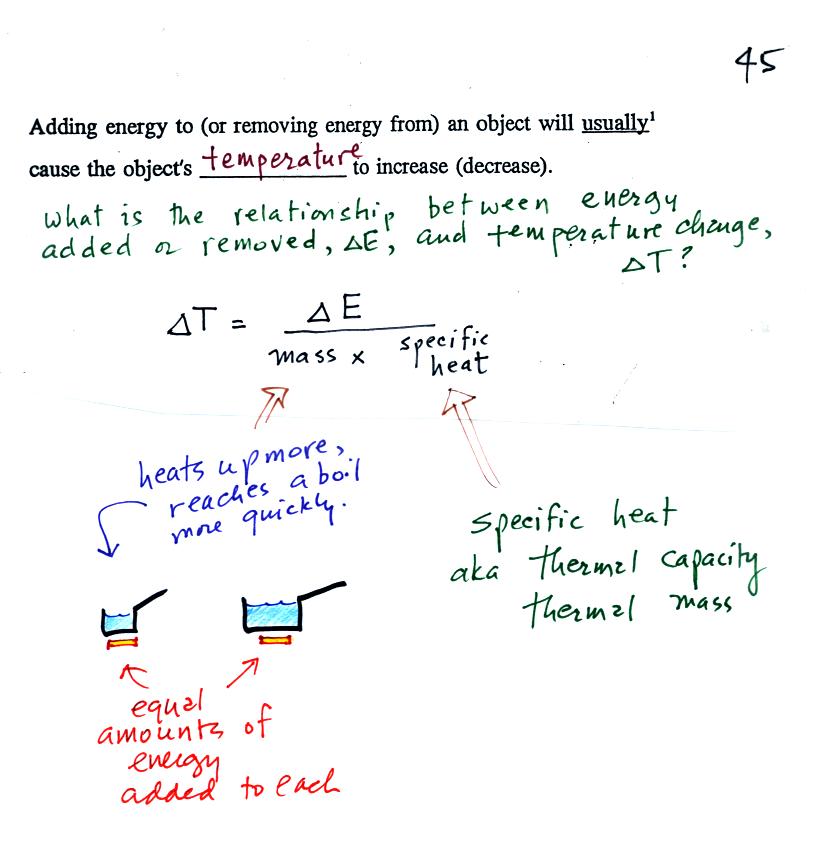 45
Adding energy to (or removing energy from) an object will usually¹
cause the object's temperature to increase (decrease).
what is the relationship between energy
added or removed, ΔE, and temperature change,
ΔT?
ΔT = ΔE
mass x specific
heat
heats up more,
reaches a boil
more quickly.
specific heat
aka thermal capacity
thermal mass
equal
amounts of
energy
added to each